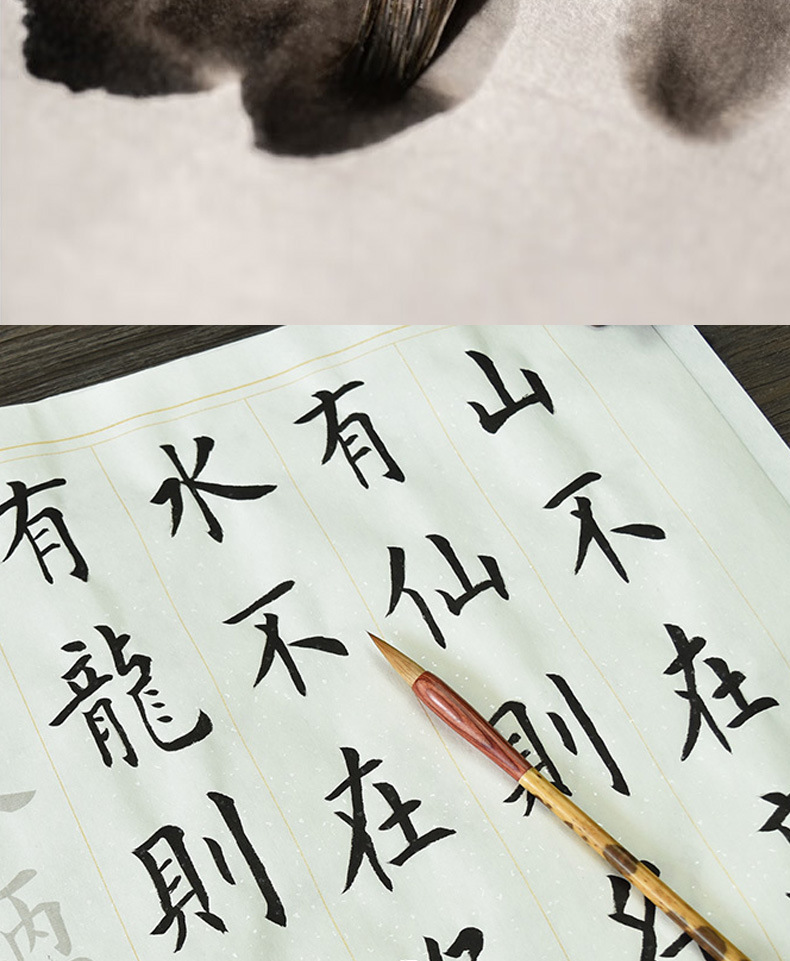 山不在
有仙則
水不在
有龍則